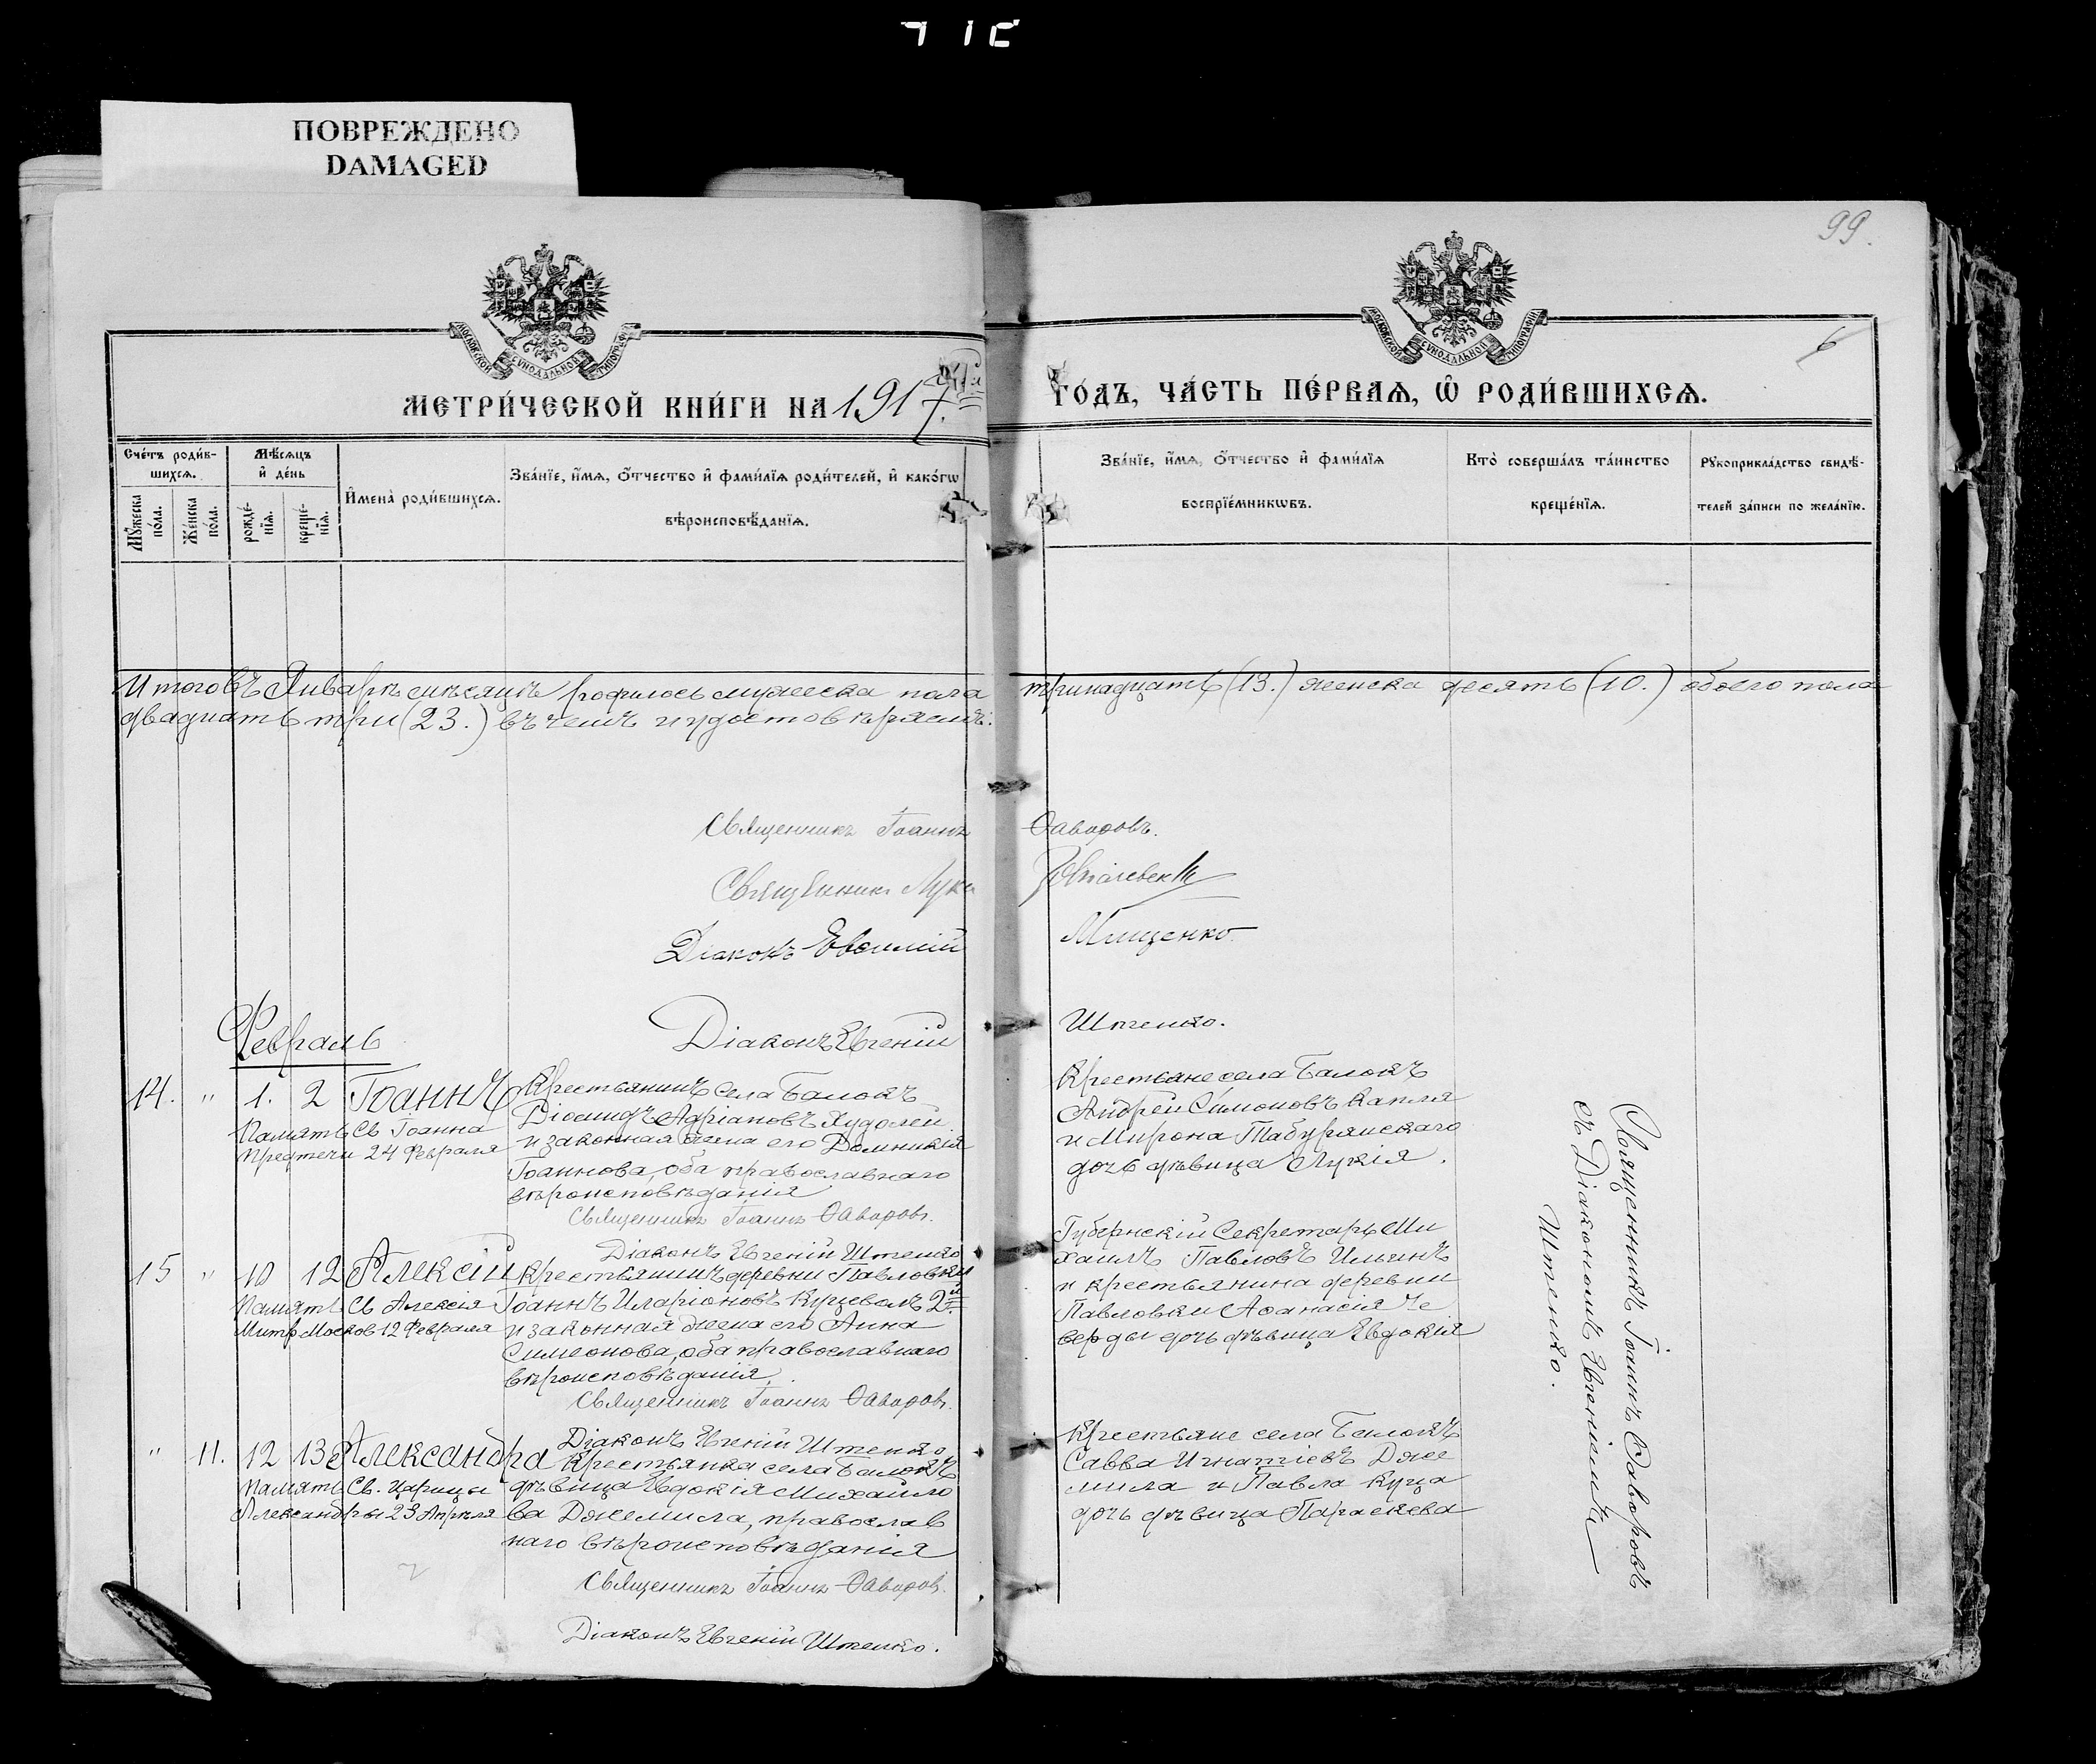 ПОВРЕЖДЕНО
DAMAGED
99.
6
МОСКОВСКОЙ СѴНОДАЛЬНОЙ ТИПОГРАФІИ
МОСКОВСКОЙ СѴНОДАЛЬНОЙ ТИПОГРАФІИ
МЕТРИ́ЧЕСКОЙ КНИ́ГИ НА 1917
ГО́ДЪ, ЧА́СТЬ ПЕ́РВАѦ, Ѡ҆ РОДИ́ВШИХСѦ.
Сче́тъ роди́в-
шихсѧ.
Мꙋ́жеска по́ла.
Же́нска по́ла.
Мѣ́сѧцъ
и҆ де́нь
рожде́-
нїѧ.
креще́-
нїѧ.
И҆мена̀ роди́вшихсѧ.
Зва́нїе, и҆́мѧ, ѻ҆́тчество и҆ фами́лїѧ роди́телей, и҆ како́гѡ
вѣроисповѣ́данїѧ.
Зва́нїе, и҆́мѧ, ѻ҆́тчество и҆ фами́лїѧ
воспрїе́мникѡвъ.
Кто̀ соверша́лъ та́инство
креще́нїѧ.
Рꙋкоприкла́дство свидѣ́-
телей за́писи по жела́нїю.
Итого въ Январѣ мѣсяцѣ родилось мужеска пола тринадцать (13.) женска десять (10.) обоего пола
двадцать три (23.) въ чемъ и удостовѣряемъ:
Священникъ Іоаннъ Ѳаворовъ.
Священникъ Лука
Діаконъ Евѳимій Мищенко
Діаконъ Евгеній Штепко.
Февраль
14. " 1. 2 Іоаннъ
Память Св Іоанна
Предтечи 24 Февраля
Крестьянинъ села Балокъ
Діомидъ Адріановъ Худолей
и законная жена его Домникія
Іоаннова, оба православнаго
вѣроисповѣданія
Священникъ Іоаннъ Ѳаворовъ.
Діаконъ Евгеній Штепко
Крестьяне села Балокъ
Андрей Симоновъ Капля
и Мирона Табурянскаго
дочь дѣвица Лукія.
15 " 10 12 Алексій
Память Св Алексія
Митр Москов 12 Февраля
крестьянинъ деревни Павловки
Іоаннъ Иларіоновъ Куцеволъ 2й
и законная жена его Анна
Симеонова, оба православнаго
вѣроисповѣданія.
Священникъ Іоаннъ Ѳаворовъ.
Діаконъ Евгеній Штепко
Губернскій Секретарь Ми
хаилъ Павловъ Ильинъ
и крестьянина деревни
Павловки Аѳанасія Че
верды дочь дѣвица Евдокія
" 11. 12 13 Александра
Память Св. Царицы
Александры 23 Апрѣля
Крестьянка села Балокъ
дѣвица Евдокія Михайло
ва Джемила, православ
наго вѣроисповѣданія
Священникъ Іоаннъ Ѳаворовъ.
Діаконъ Евгеній Штепко.
Крестьяне села Балокъ
Савва Игнатіевъ Дже
мила и Павла Куца
дочь дѣвица Параскева
Священникъ Іоаннъ Ѳаворовъ
съ Діакономъ Евгеніемъ
Штепко.